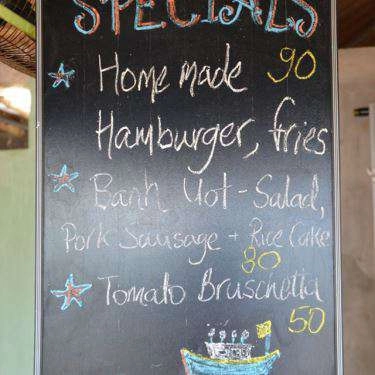 SPECIALS
Home made 90
Hamburger, fries
Banh Uot - Salad,
Pork Sausage + Rice Cake
80
Tomato Bruschetta
50